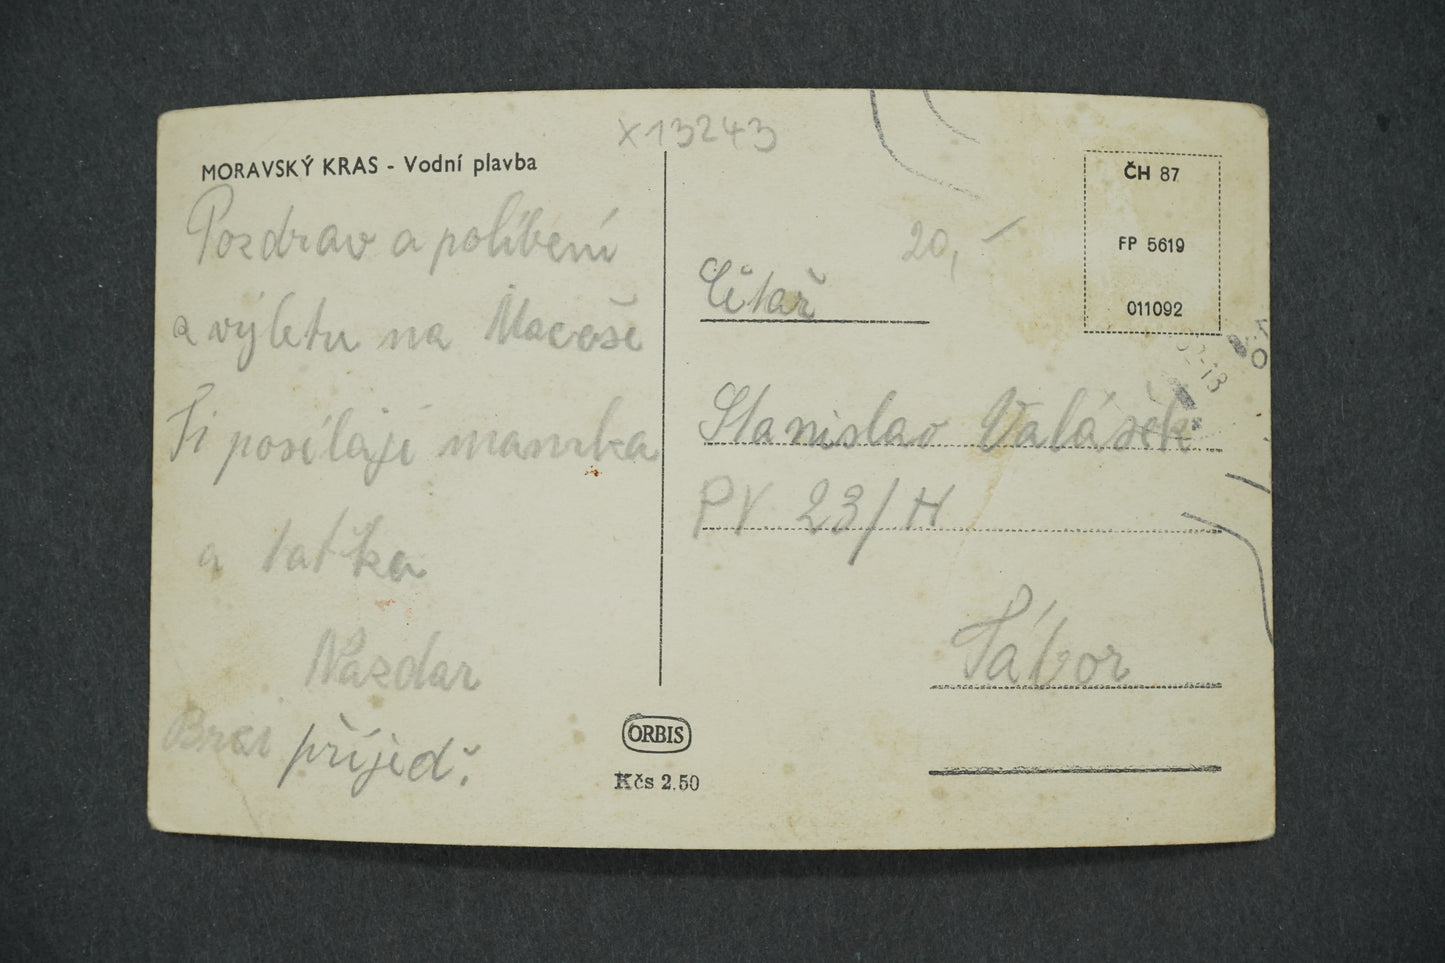 x 13243
MORAVSKÝ KRAS - Vodní plavba
Pozdrav a políbení
z výletu na Macoše
Ti posílají maminka
a taťka
Nazdar
Brzi přijeď.
20,-
Čtař
Stanislav Valášek
PV 23/H
Tábor
ČH 87
FP 5619
011092
ORBIS
Kčs 2.50